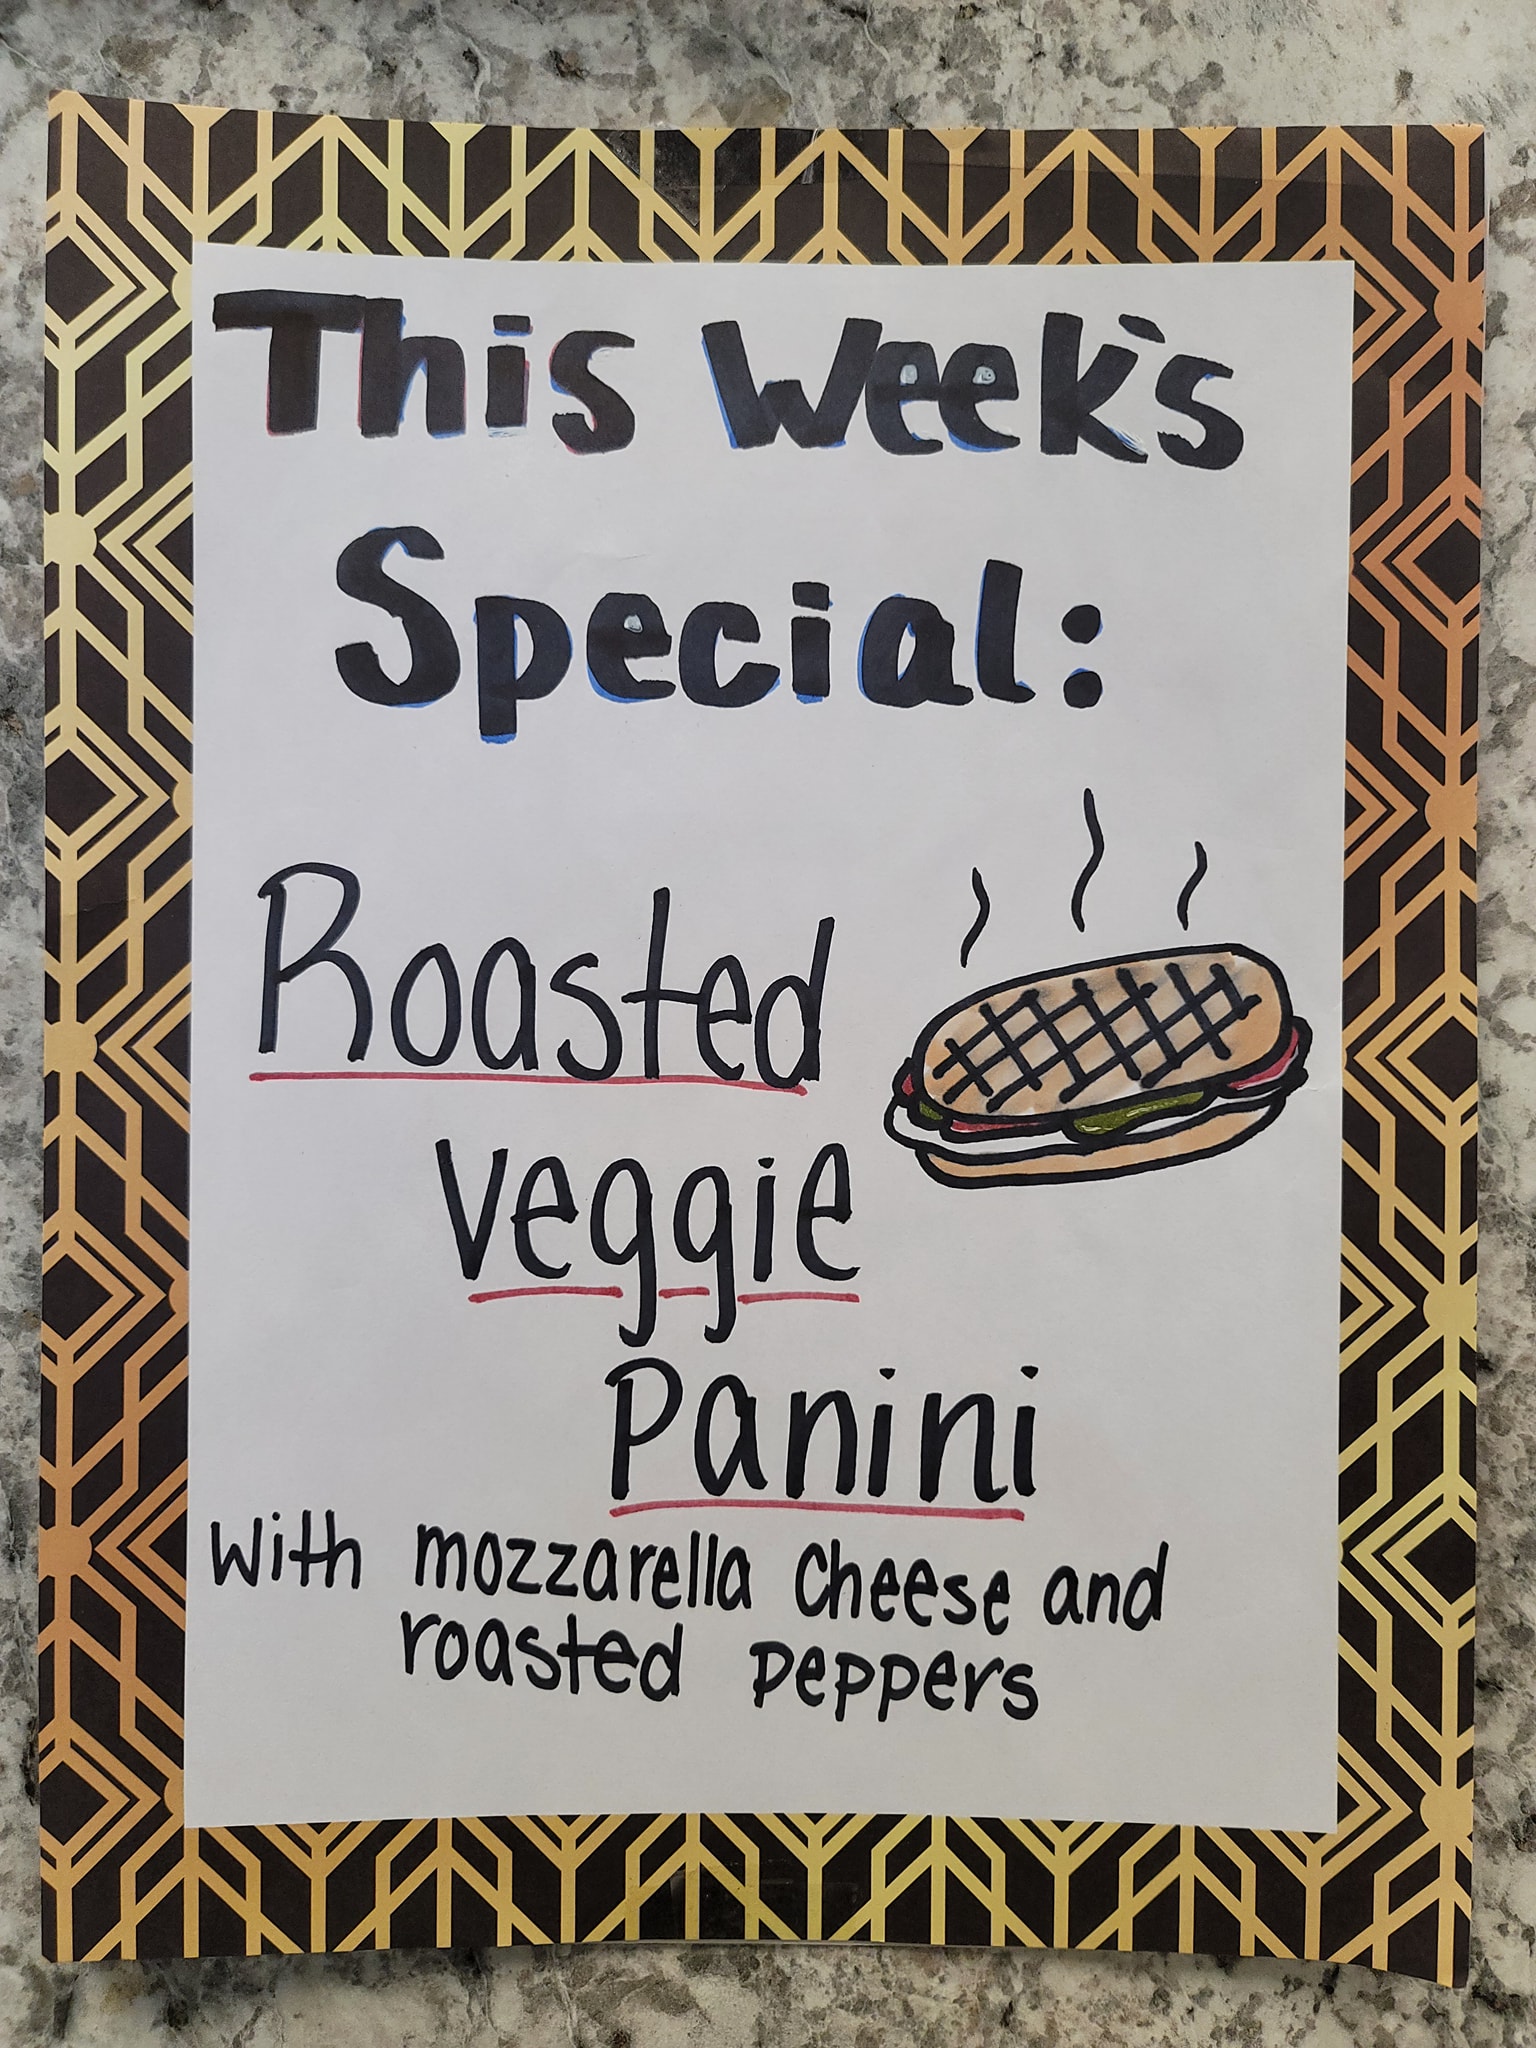 This Week's
Special:
Roasted
Veggie
Panini
With mozzarella cheese and
roasted peppers